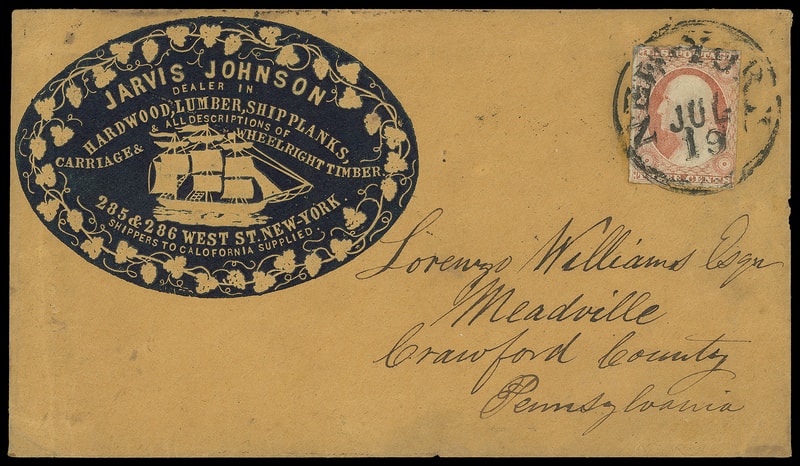 JARVIS JOHNSON
DEALER IN
HARDWOOD, LUMBER, SHIP PLANKS,
& ALL DESCRIPTIONS OF
CARRIAGE & WHEELRIGHT TIMBER.
285 & 286 WEST ST. NEW-YORK
SHIPPERS TO CALOFORNIA SUPPLIED.
NEW YORK
JUL
19
CENTS
Lorenzo Williams Esqr
Meadville
Crawford County
Pennsylvania